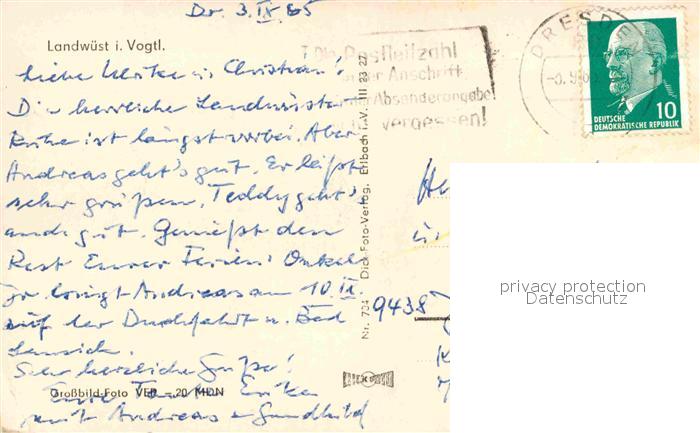 Dr. 3.IX 65
Landwüst i. Vogtl.
Liebe Ulrike u. Christian,
Die herrliche Landwüster
Ruhe ist längst vorbei. Aber
Andreas geht's gut. Er läßt
sehr grüßen, Teddy geht's
auch gut. Genießt den
Rest Eurer Ferien! Onkel
Jo. bringt Andreas am 10.IX.
auf der Durchfahrt n. Bad
Lausick.
Sehr herzliche Grüße!
Eure Tante Erika
mit Andreas + Gundhild
Großbild-Foto VEB -.20 MDN
Nr. 734 Dick-Foto-Verlag, Erlbach i. V. III 23 27
Die Postleitzahl
Anschrift
Absenderangabe
vergessen!
DRESDEN
DEUTSCHE 10
DEMOKRATISCHE REPUBLIK
9438
privacy protection
Datenschutz